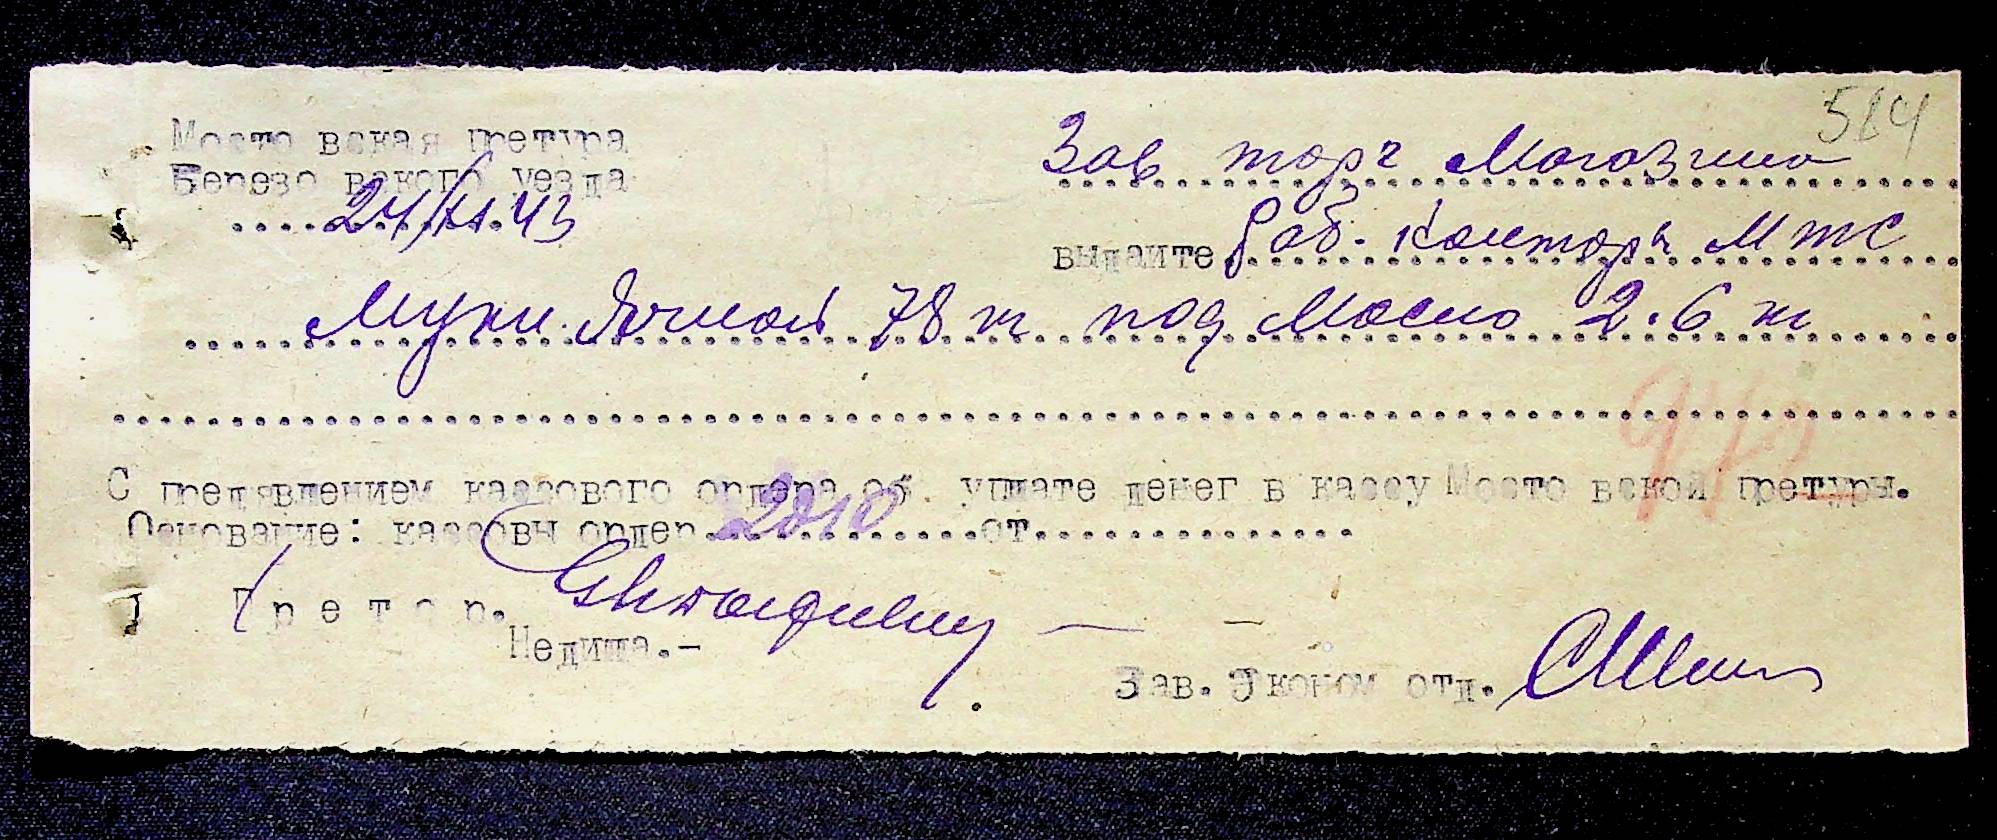 584
Мосто вская претура
Березо вакого уезда
Зав торг Магазина
....24/XI.43
выдайте раб. конторы М т с
Муки Ячной 78 кг. под Масло 2.6 кг
С предявлением кассового ордера об уплате денег в кассу Мосто вской претуры.
Основание: кассовы ордер 2010 от
Претор.
Недиша.-
Зав. Эконом отд.